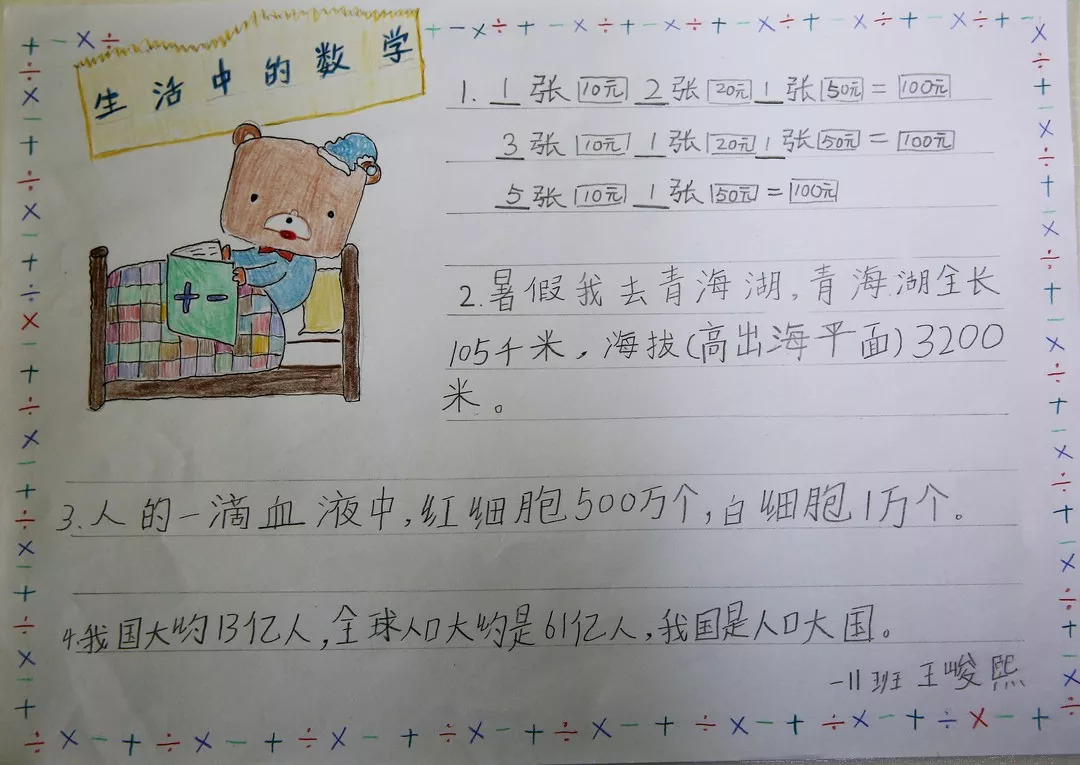 生活中的数学
1. 1张10元 2张20元 1张50元=100元
3张10元 1张20元 1张50元=100元
5张10元 1张50元=100元
2.暑假我去青海湖,青海湖全长
105千米,海拔(高出海平面)3200
米。
3.人的一滴血液中,红细胞500万个,白细胞1万个。
4.我国大约13亿人,全球人口大约是61亿人,我国是人口大国。
一11班 王峻熙